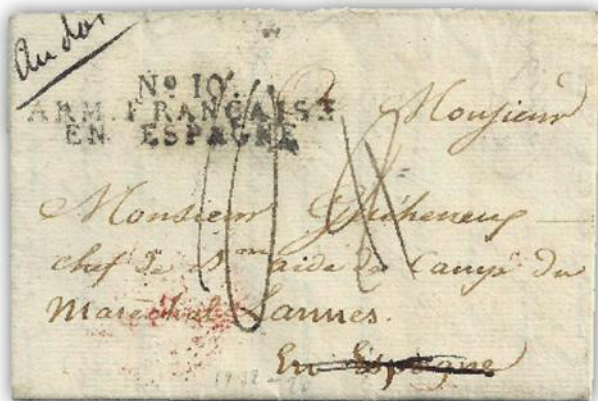 au dos
No 10.
ARM. FRANÇAISE
EN ESPAGNE
Monsieur
Monsieur Guéheneuc
chef de B.on aide de Camp du
Maréchal Lannes.
En Espagne